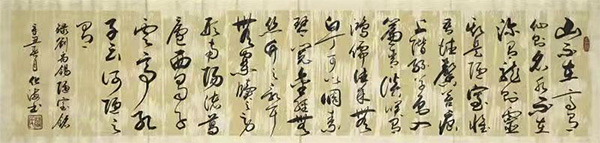 山不在高有
仙则名水不在
深有龙则灵
斯是陋室惟
吾德馨苔痕
上阶绿草色入
帘青谈笑有
鸿儒往来无
白丁可以调素
琴阅金经无
丝竹之乱耳
无案牍之劳
形南阳诸葛
庐西蜀子
云亭孔
子云何陋之
有
录刘禹锡陋室铭
辛丑 月 书